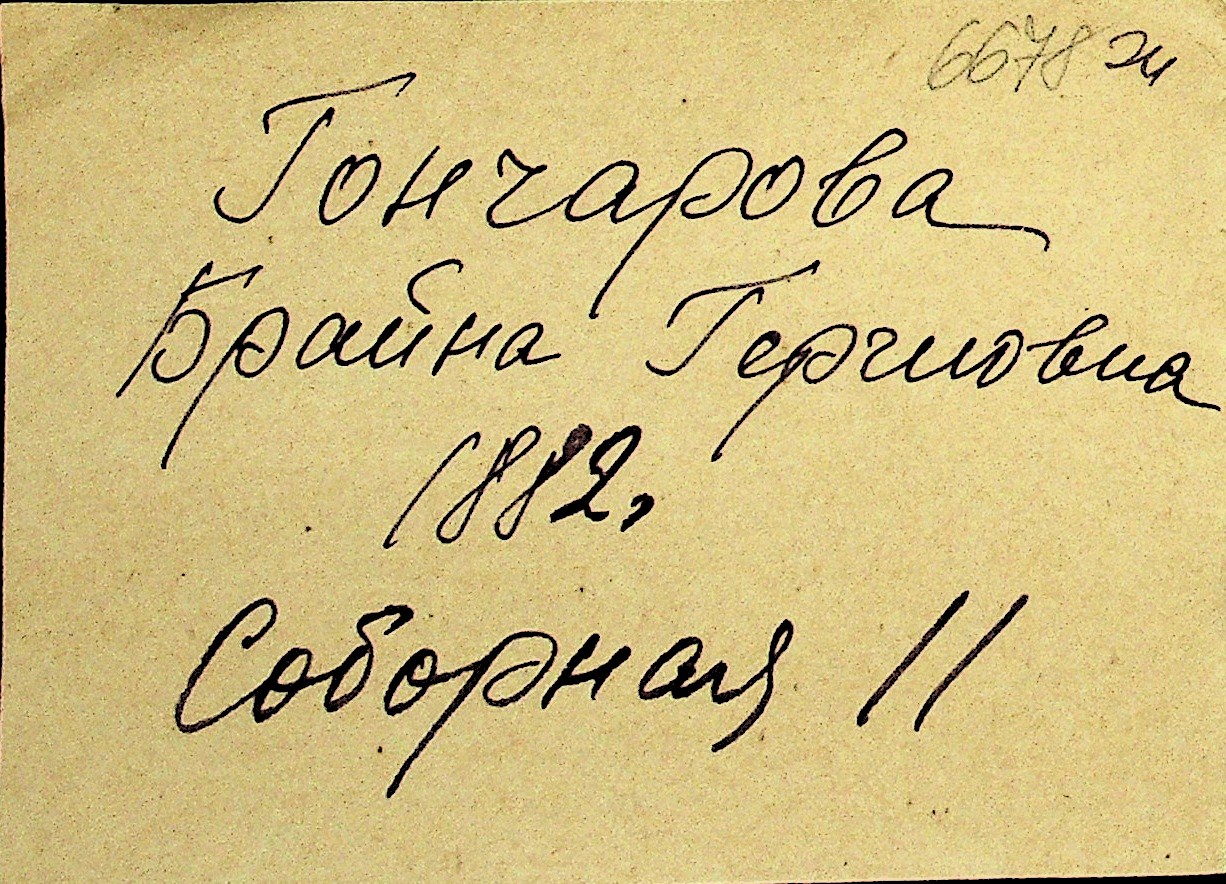 6678 эи
Гончарова
Брайна Гершовна
1882,
Соборная 11